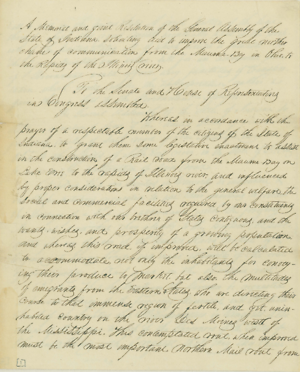 A Memorial and joint Resolution of the General Assembly of the
State of Indiana
modes of communication from the Maumee Bay in Ohio to
the Rapids of the Illinois river
To the Senate and House of Representatives
in Congress assembled
Whereas in accordance with the
prayer of a respectable number of the citizens of the State of
Indiana to grant them some legislative
in the construction of a Rail Road from the Maumee Bay on
Lake Erie to the rapids of Illinois river and influenced
by proper considerations in relation to the general welfare the
social and commercial facilities required by our constituents
in connection with our brethren of States contiguous and the
wants, wishes, and prosperity of a growing population
and whereas this road if improved will be calculated
to accommodate not only the inhabitants for convey-
ing their produce to Market but also the multitudes
of emigrants from the Eastern States who are directing their
course to that immense region of fertile and yet unin-
habited country on the river Des Moines west of
the Mississippi. This contemplated road when improved
must be the most important Northern Mail road from